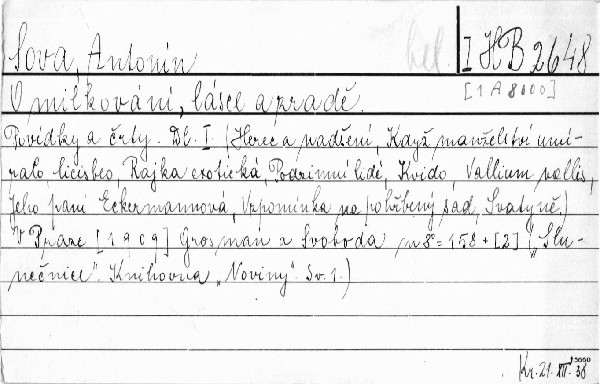 Sova, Antonín bel. I HB 2648
O milkování, lásce a zradě. [1A8600]
Povídky a črty. Dl. I. (Herec a nadšení, Když manželství umí-
ralo, Cicisbeo, Rajka exotická, Podzimní lidé, Kvido, Vallium vallis,
Jeho paní Eckermannová, Vzpomínka na pohřbený sad, Svatyně.)
V Praze [1909] Grosman a Svoboda m8°=158+[2] („Slu-
nečnice“. Knihovna „Noviny“. Sv. 1.)
Kr. 21. XII. 36